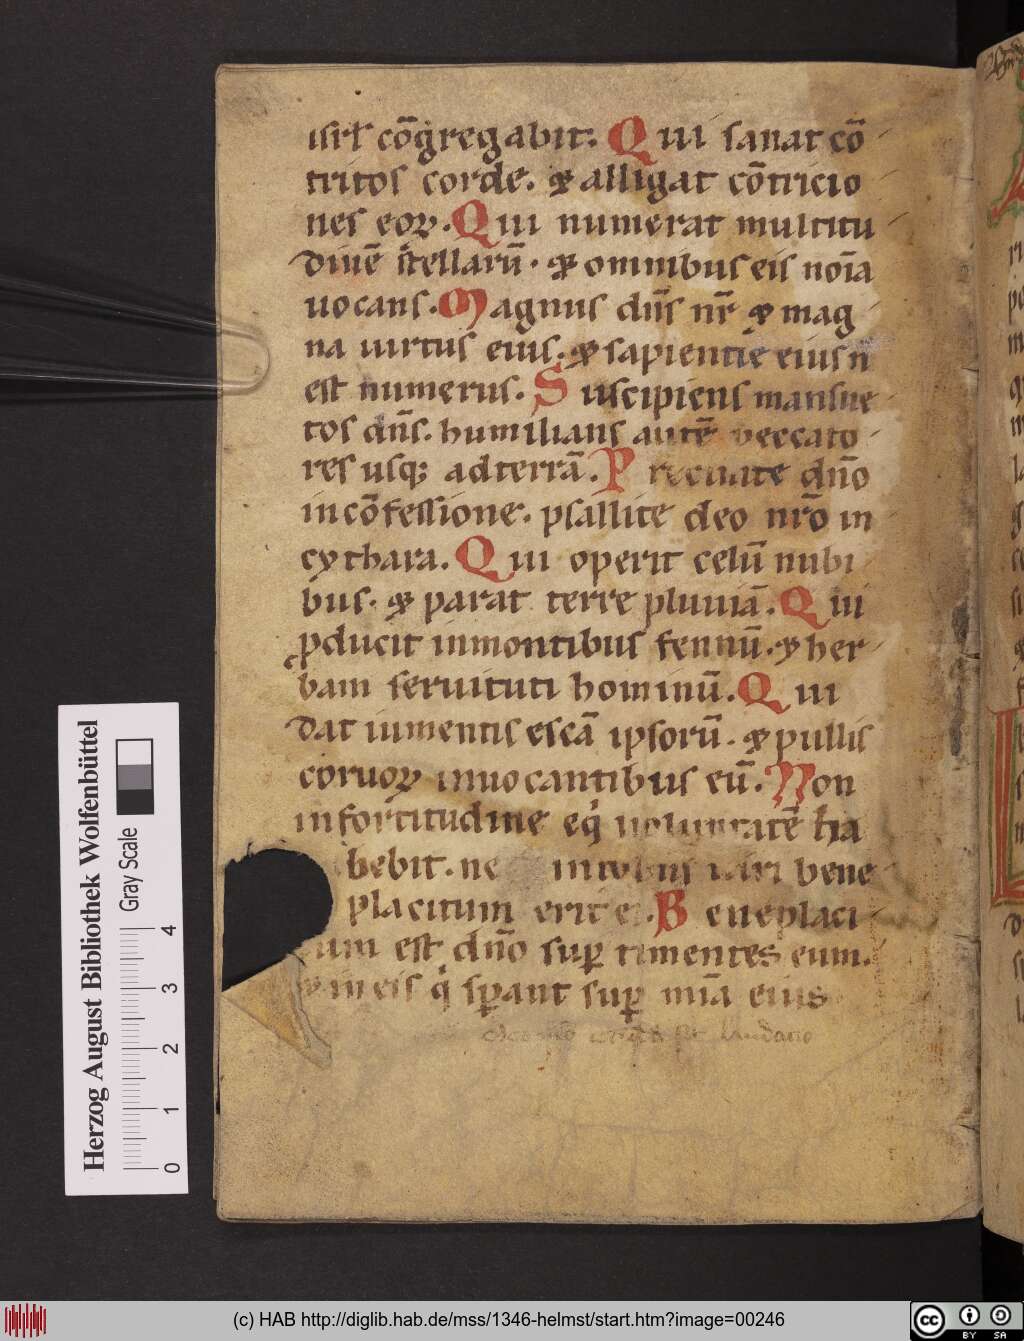 isrl̄ cōgregabit. Qui sanat cō
tritos corde. & alligat cōtricio
nes eoꝝ. Qui numerat multitu
dinē stellarū. & omnibus eis noīa
uocans. Magnus dn̄s nr̄ & mag
na uirtus eius. & sapientię eius n̄
est numerus. Suscipiens mansue
tos dn̄s. humilians autē peccato
res usq; ad terrā. Precinite dn̄o
in cōfessione. psallite deo nr̄o in
cythara. Qui operit celū nubi
bus. & parat terre pluuiā. Qui
ꝓducit in montibus fennū. & her
bam seruituti hominū. Qui
dat iumentis escā ipsorū. & pullis
coruoꝝ inuocantibus eū. Non
in fortitudine eq̇ uoluntatē ha
bebit. ne in uiri bene
placitum erit ei. Beneplaci
tum est dn̄o suꝑ timentes eum.
& in eis q̇ sꝑant suꝑ mīa eius
Herzog August Bibliothek Wolfenbüttel
Gray Scale
0 1 2 3 4
(c) HAB http://diglib.hab.de/mss/1346-helmst/start.htm?image=00246
cc BY SA